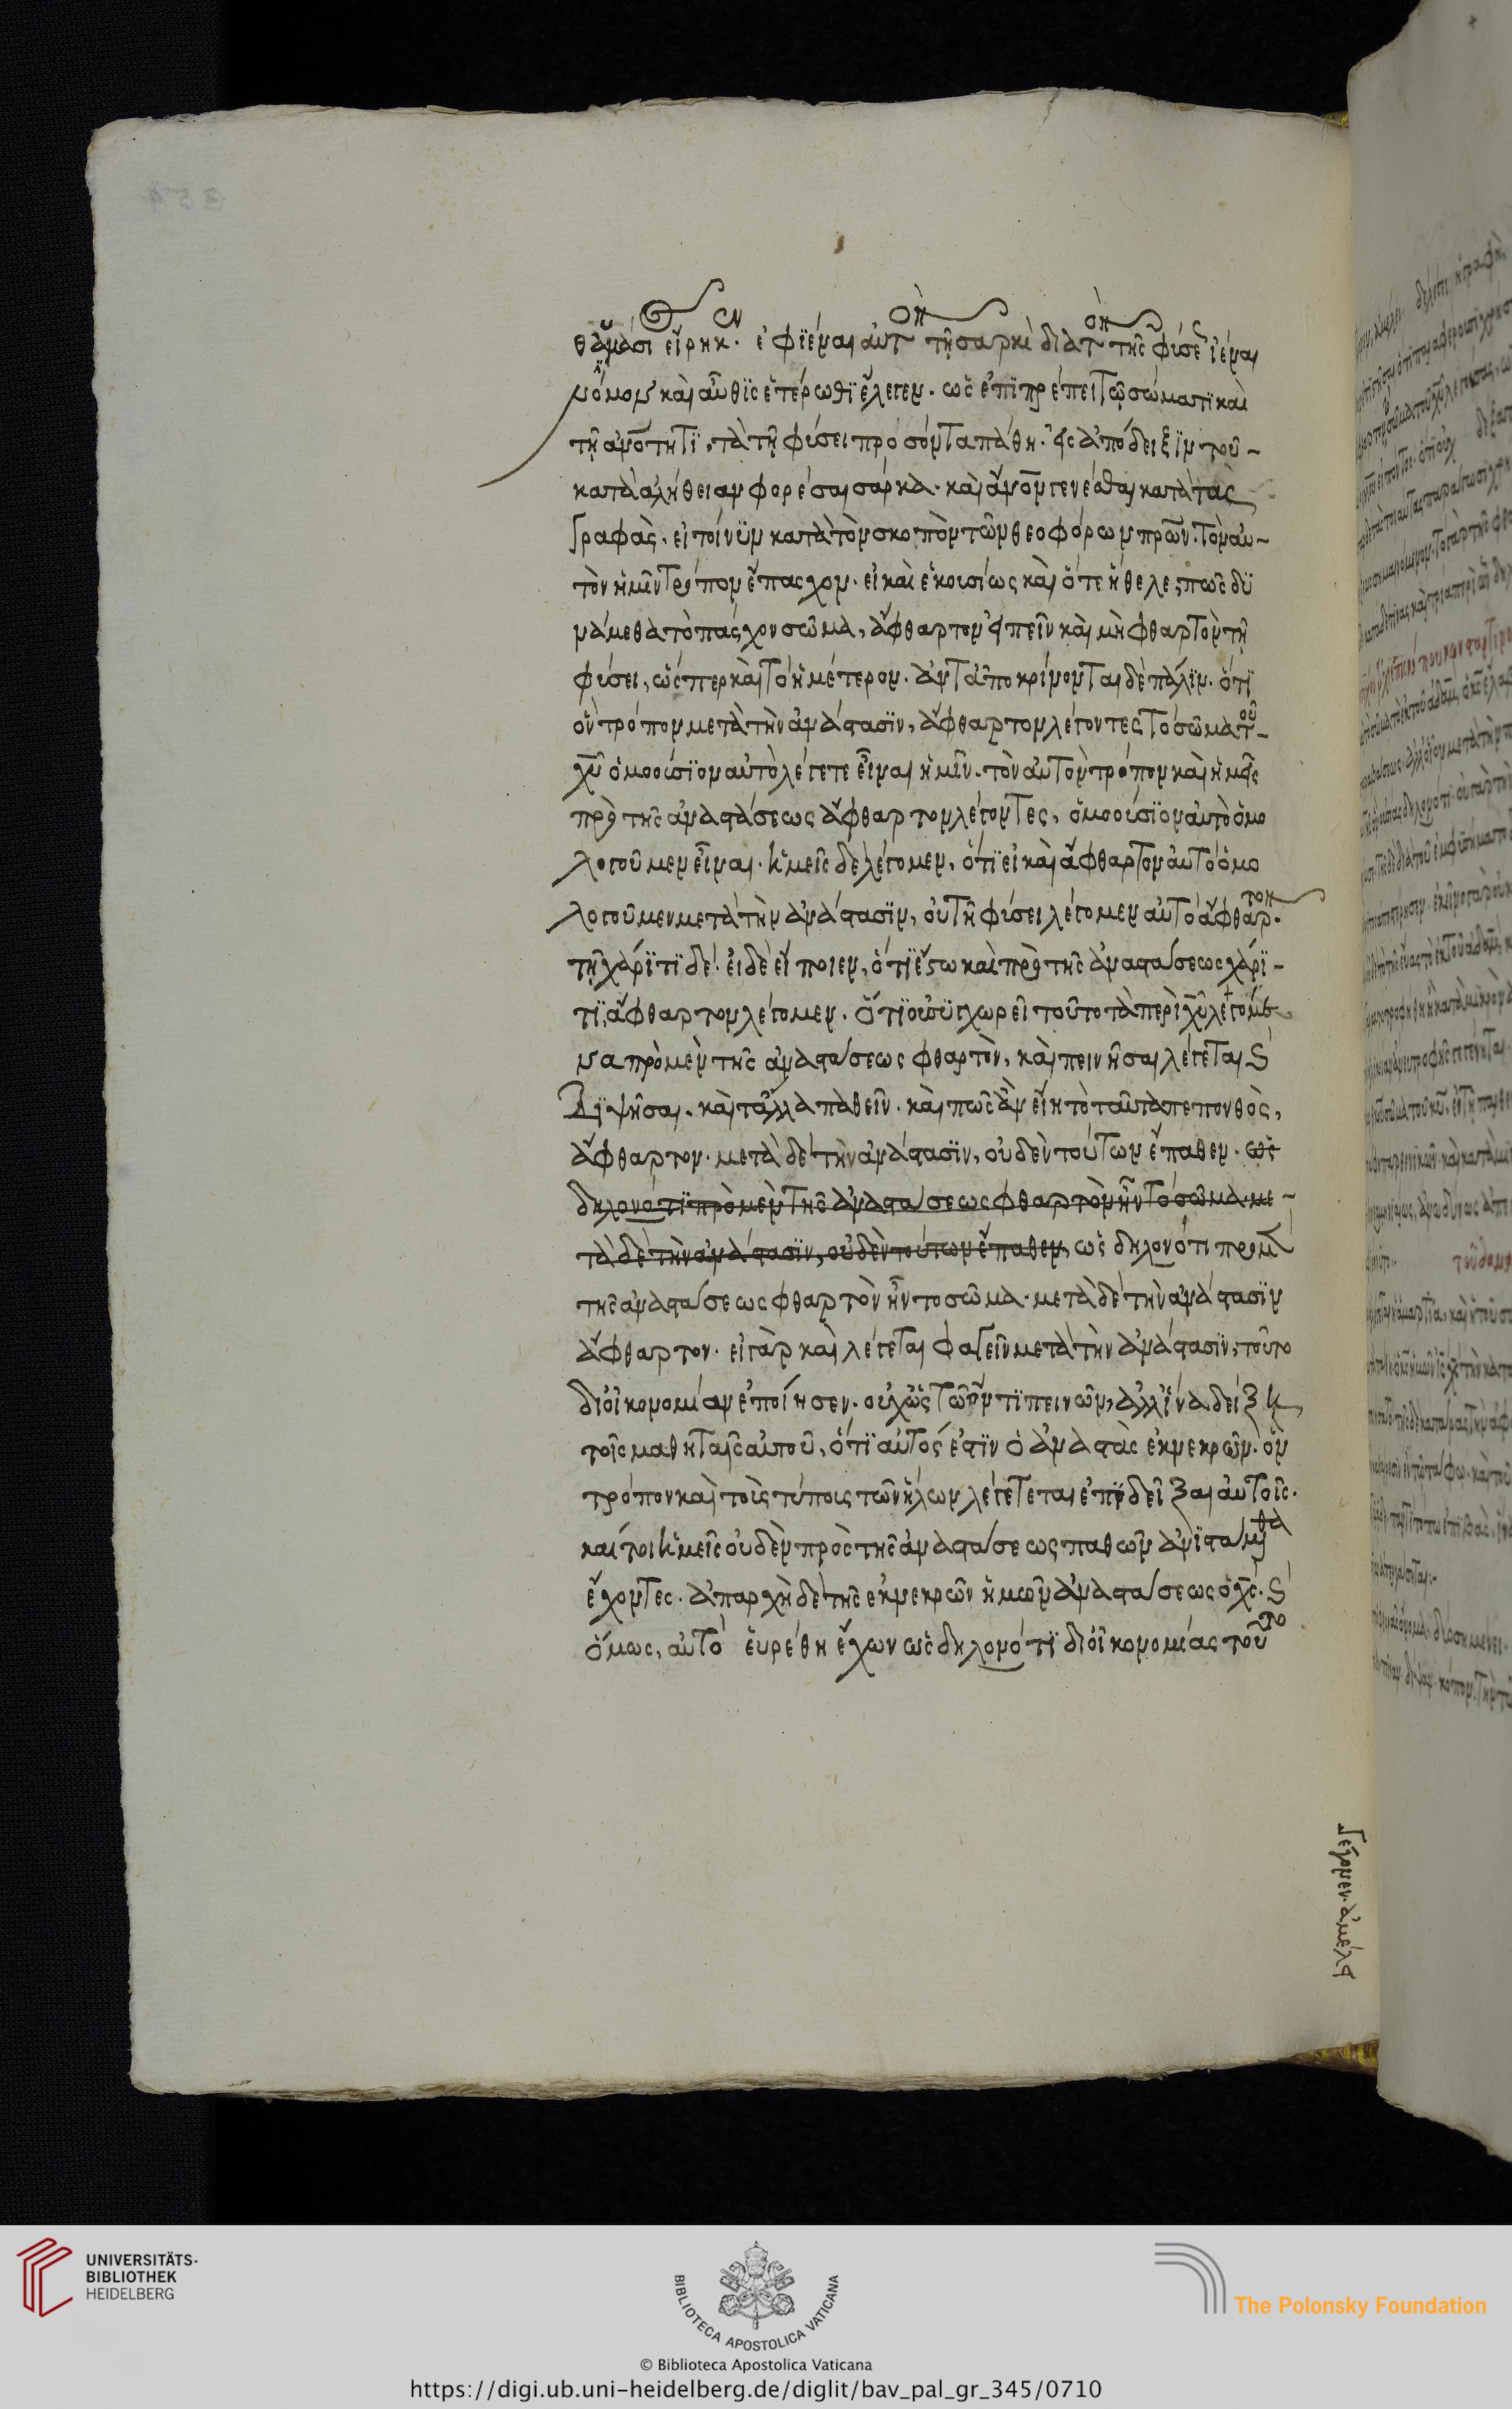 θαύμασι εἴρηκ. ἐφϊέναι αὐτ τῇ σαρκὶ διὰ τ τῆς φύσε ἰέναι
νόμον καὶ αὖθϊς ἑτέρωθϊ ἔλεγεν. ὡς ἐπϊπρέπει τῷ σώματϊ καὶ
τῇ ἀνότητϊ, τὰ τῇ φύσει προσόντα πάθη. εἰς ἀπόδειξϊν τοῦ -
κατὰ ἀλήθειαν φορέσαι σάρκα. καὶ ἄνον γενέσθαι κατὰ τὰς
γραφὰς. εἰ τοίνϋν κατὰ τὸν σκοπὸν τῶν θεοφόρων πρων. τὸν αὐ-
τὸν ἡμῖν τρόπον ἔπασχον. εἰ καὶ ἑκουσίως καὶ ὅτε ἤθελε, πῶς δϋ
νάμεθα τὸ πάσχον σῶμα, ἄφθαρτον εἰπεῖν καὶ μὴ φθαρτὸν τῇ
φύσει, ὥσπερ καὶ τὸ ἡμέτερον. ἀνταποκρίνονται δὲ πάλϊν. ὅτϊ
ὃν τρόπον μετὰ τὴν ἀνάστασϊν, ἄφθαρτον λέγοντες τὸ σῶμα τοῦ -
χυ ὁμοούσϊον αὐτὸ λέγετε εἶναι ἡμῖν. τὸν αὐτὸν τρόπον καὶ ἡμεῖς
πρὸ τῆς ἀναστάσεως ἄφθαρτον λέγοντες, ὁμοούσϊον αὐτὸ ὁμο
λογοῦμεν εἶναι. ἡμεῖς δὲ λέγομεν, ὅτϊ εἰ καὶ ἄφθαρτον αὐτὸ ὁμο
λογοῦμεν μετὰ τὴν ἀνάστασϊν, οὐ τῇ φύσει λέγομεν αὐτὸ ἄφθαρτον.
τῇ χάρϊτϊ δέ. εἰ δὲ εἴποιεν, ὅτϊ ἔστω καὶ πρὸ τῆς ἀναστάσεως χάρϊ -
τϊ, ἄφθαρτον λέγομεν. ὅτϊ οὐ σϋγχωρεῖ τοῦτο τὰ περὶ χυ λεγόμε
να πρὸ μὲν τῆς ἀναστάσεως φθαρτὸν, καὶ πεινῆσαι λέγεται ϗ
Διψῆσαι. καὶ τἄλλα παθεῖν. καὶ πῶς ἂν εἴη τὸ ταῦτα πεπονθὸς,
ἄφθαρτον. μετὰ δὲ τὴν ἀνάστασϊν, οὐδὲν τούτων ἔπαθεν. ὡς
δηλονότϊ πρὸ μὲν τῆς ἀναστάσεως φθαρτὸν ἦν τὸ σῶμα. με -
τὰ δὲ τὴν ἀνάστασϊν, οὐδὲν τούτων ἔπαθεν, ὡς δηλονότι πρὸ μ
τῆς ἀναστάσεως φθαρτὸν ἦν τὸ σῶμα. μετὰ δὲ τὴν ἀνάστασϊν
ἄφθαρτον. εἰ γὰρ καὶ λέγεται φαγεῖν μετὰ τὴν ἀνάστασϊν, τοῦτο
δι οἰκονομίαν ἐποίησεν. οὐχ ὡς τῷ ὄντϊ πεινῶν, ἀλλ ἵνα δείξη
τοῖς μαθηταῖς αὐτοῦ, ὅτϊ αὐτός ἐστϊν ὁ ἀναστὰς ἐκ νεκρῶν. ὃν
τρόπον καὶ τοὺς τύπους τῶν ἥλων λέγεται ἐπϊδεῖξαι αὐτοῖς.
καίτοι ἡμεῖς οὐδὲν πρὸς τῆς ἀναστάσεως παθῶν ἀνϊστάμεθα
ἔχοντες. ἀπαρχὴ δὲ τῆς ἐκ νεκρῶν ἡμῶν ἀναστάσεως ὁ χς. ϗ
ὅμως, αὐτὸ εὑρέθη ἔχων ὡς δηλονότϊ δι οἰκονομίας τοῦτο